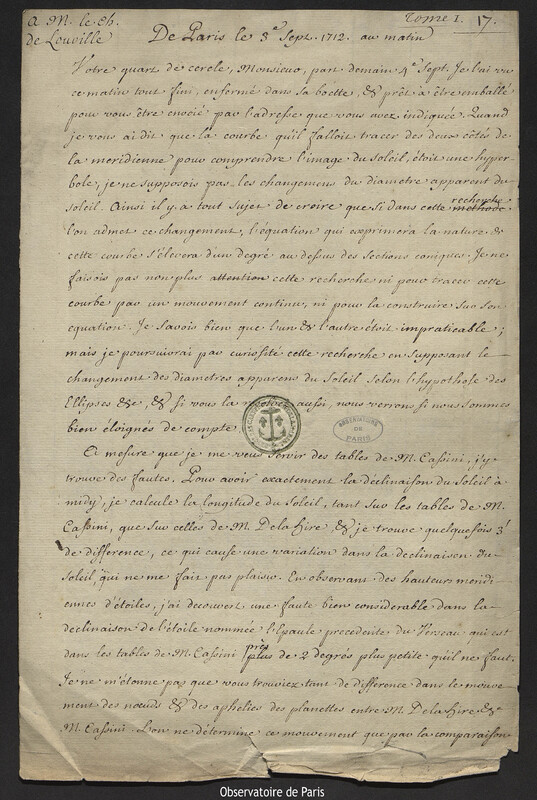 A M. le Ch.
de Louville
Tome I. 17.
De Paris le 3e Sept. 1712. au matin
Votre quart de cercle, Monsieur, part demain 4e Sept. Je l'ai vu
ce matin tout fini, enfermé dans sa boette, & prêt à être emballé
pour vous être envoié par l'adresse que vous avez indiquée. Quand
je vous ai dit que la courbe qu'il falloit tracer des deux côtés de
la meridienne pour comprendre l'image du soleil, étoit une hyper
bole, je ne supposois pas les changemens du diametre apparent du
soleil. Ainsi il y a tout sujet de croire que si dans cette methode recherche
l'on admet ce changement, l'équation qui exprimera la nature de
cette courbe s'élevera d'un degré au dessus des sections coniques. Je ne
faisois pas non plus attention cette recherche ni pour tracer cette
courbe par un mouvement continu, ni pour la construire sur son
equation. Je savois bien que l'un & l'autre étoit impraticable;
mais je poursuivrai par curiosité cette recherche en supposant le
changement des diametres apparens du Soleil selon l'hypothese des
Ellipses &c, & si vous la aussi, nous verrons si nous sommes
bien éloignés de compte.
OBSERVATOIRE
DE
PARIS
A mesure que je me veus servir des tables de M. Cassini, j'y
trouve des fautes. Pour avoir exactement la déclinaison du Soleil à
midy, je calcule la longitude du Soleil, tant sur les tables de M.
Cassini, que sur celles de M. De la Hire, & je trouve quelquefois 3'
de difference, ce qui cause une variation dans la declinaison du
Soleil, qui ne me fait pas plaisir. En observant des hauteurs meridi
ennes d'étoiles, j'ai decouvert une faute bien considerable dans la
declinaison de l'étoile nommée l'Epaule precedente du Verseau qui est
dans les tables de M. Cassini près plus de 2 degrés plus petite qu'il ne faut.
Je ne m'étonne pas que vous trouviez tant de difference dans le mouve
ment des nœuds & des aphelies des planettes entre M. De la Hire &
M. Cassini. L'on ne détermine ce mouvement que par la comparaison
Observatoire de Paris